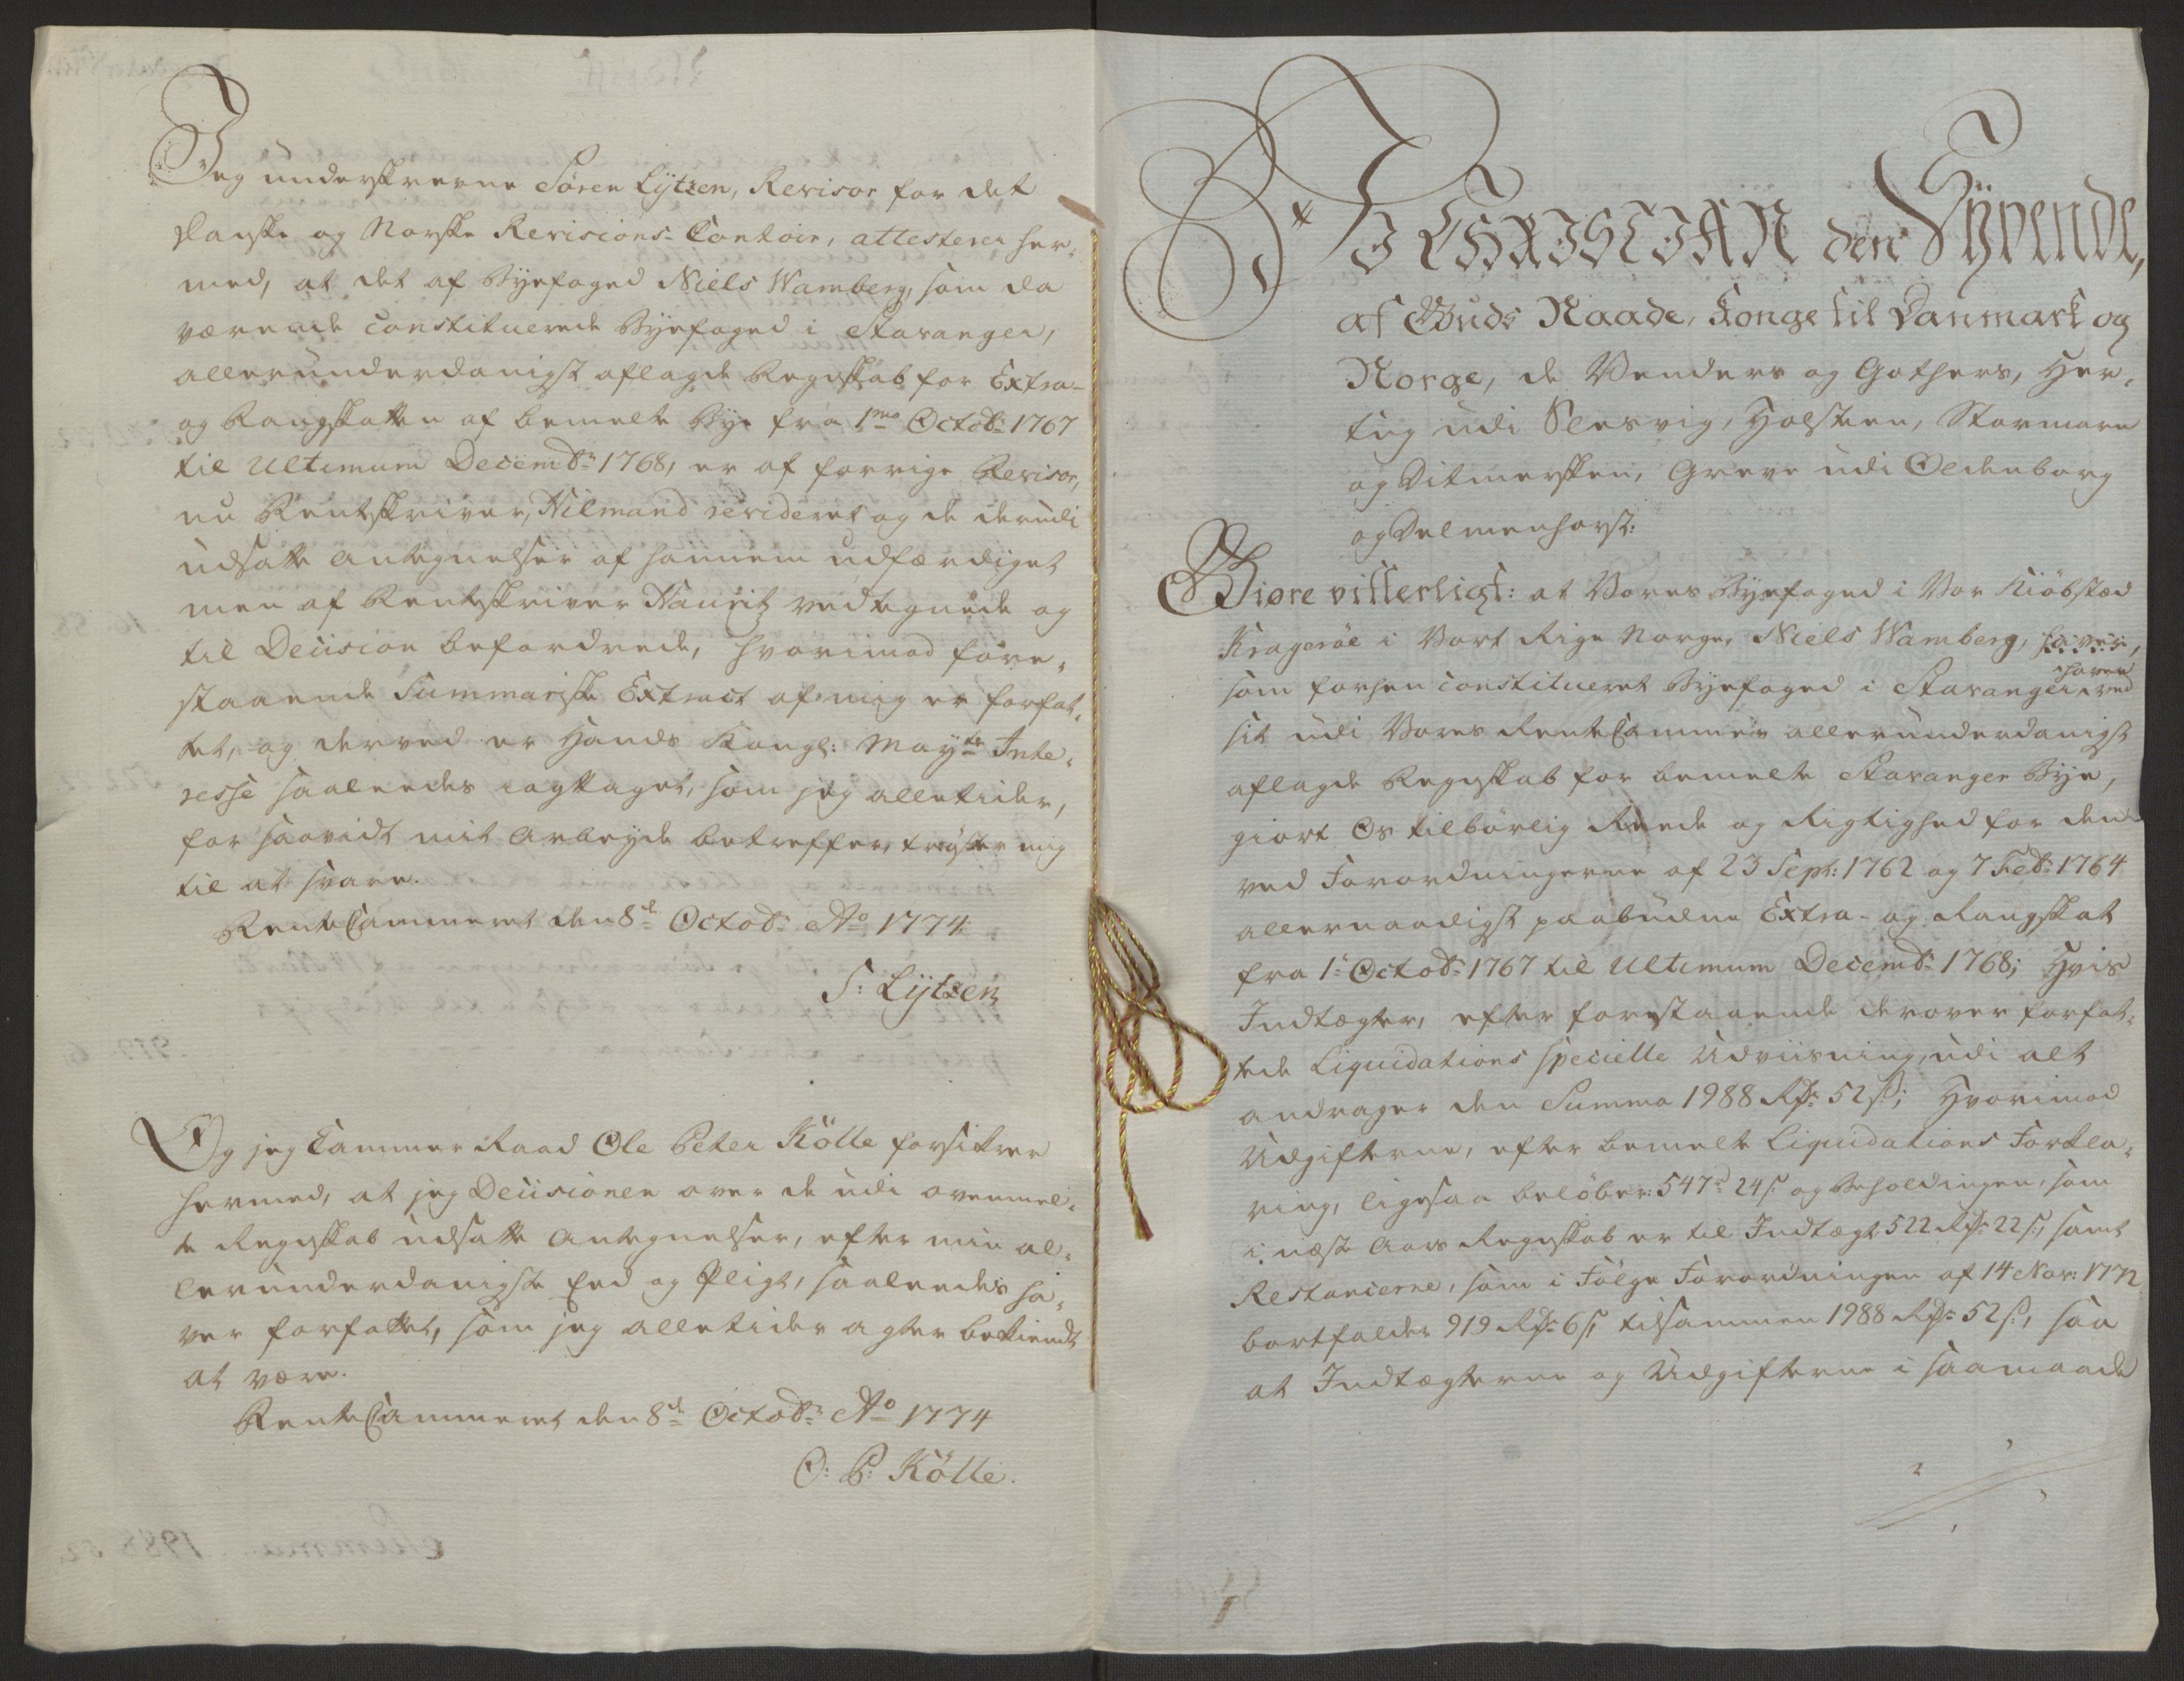 Jeg underskrevne Sören Lÿtzen, Revisor for det
Danske og Norske Revisions-Contoir, attesterer her-
med, at det af Byefoged Niels Wamberg, som da
værende constituerede Byefoged i Stavanger,
allerunderdanigst aflagde Regnskab for Extra-
og Rangskatten af bemelte Bye fra 1mo Octobr: 1767
til Ultimum Decembr: 1768, er af forrige Revisor,
nu Renteskriver, Hilmand revideret og de derudi
udsatte Antegnelser af hannem udfærdiget
men af Renteskriver Hauritz vedtegnede og
til Decision befordrede, hvorimod fore-
staaende Summariske Extract af mig er forfat-
tet, og derved er Hands Kongl: Mayts Inte-
resse saaleedes iagttaget, som jeg alletider,
for saavidt mit Arbeyde betreffer, tröster mig
til at svare.
RenteCammeret den 8de Octobr: Ao 1774
S: Lÿtzen
Og jeg Cammer Raad Ole Peter Kölle forsikrer
hermed, at jeg Decisionen over de udi ovenmel-
te Regnskab udsatte Antegnelser, efter min al-
lerunderdanigste Eed og Pligt, saaleedes ha-
ver forfattet, som jeg alletider agter bekiendt
at være.
RenteCammeret den 8de Octobr: Ao 1774
O: P: Kölle.
Wi CHRISTIAN den Syvende,
af Guds Naade, Konge til Danmark og
Norge, de Venders og Gothers, Her-
tug udi Slesvig, Holsteen, Stormarn
og Ditmersken, Greve udi Oldenborg
og Delmenhorst:
Giöre vitterligt: at Vores Byefoged i Vor Kiöbsted
Krageröe i Vort Rige Norge, Niels Wamberg, haver,
som forhen constitueret Byefoged i Stavanger, haver ved
sit udi Vores RenteCammer allerunderdanigst
aflagde Regnskab for bemelte Stavanger Bye,
giort Os tilbörlig Reede og Rigtighed for den
ved Forordningerne af 23 Sept: 1762 og 7 Febr: 1764
allernaadigst paabudne Extra- og Rangskat
fra 1te Octobr: 1767 til Ultimum Decembr: 1768; Hvis
Indtægter, efter forestaaende derover forfat-
tede Liquidations specielle Udviisning, udi alt
andrager den Summa 1988 Rdr 52 s; Hvorimod
Udgifterne, efter bemelte Liquidations Forkla-
ring, ligesaa belöber: 547 r 24 s og Beholdingen, som
i næste Aars Regnskab er til Indtægt 522 Rdr 22 s, samt
Restancerne, som i Fölge Forordningen af 14 Nov: 1772
bortfalder 919 Rdr 6 s, tilsammen 1988 Rdr 52 s, saa
at Indtægterne og Udgifterne i saamaade